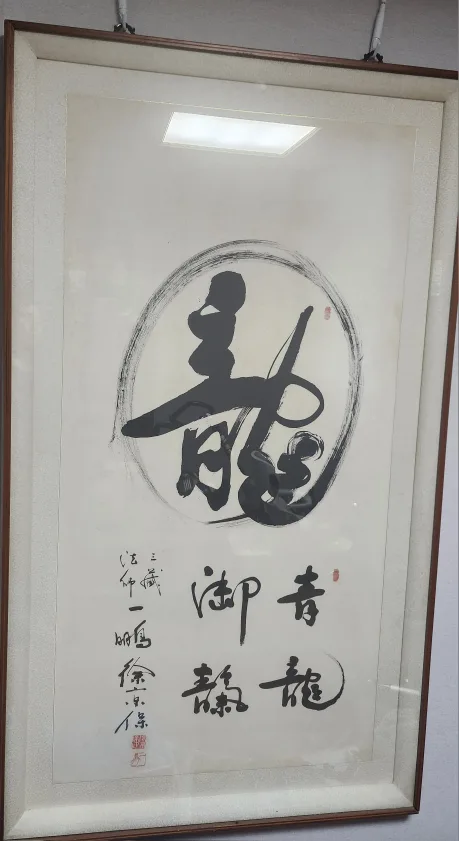 龍
青龍
御靝
三藏
法師
一鵬徐京保